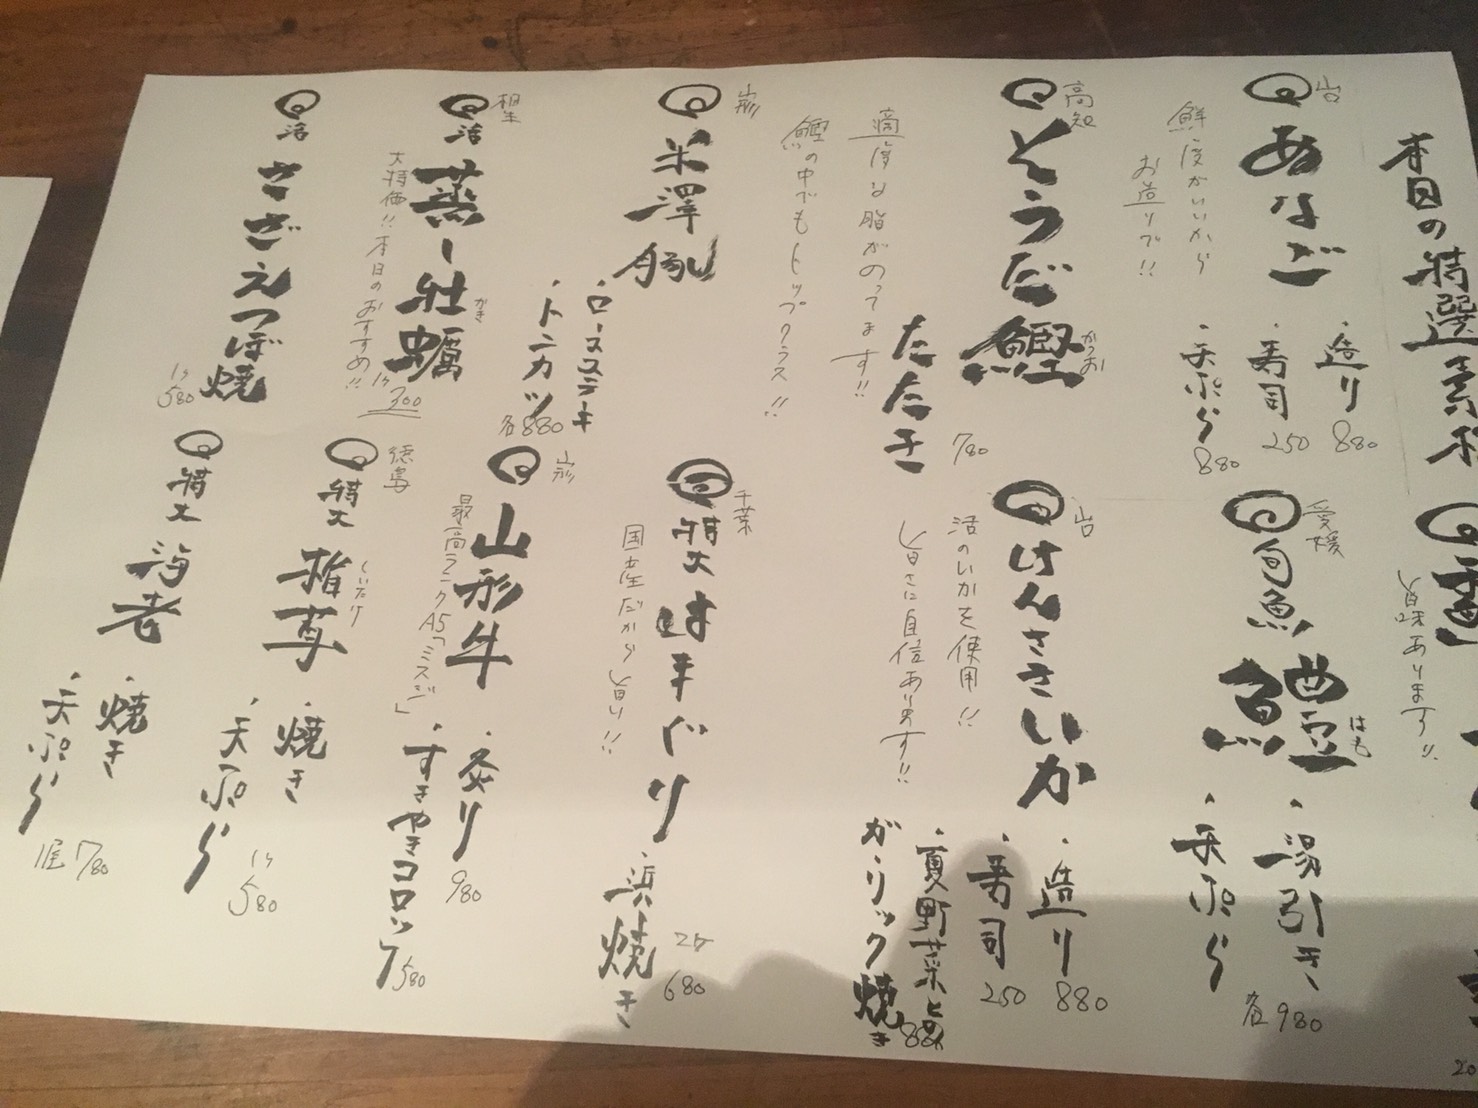 本日の特選素材
山口
あなご
鮮度がいいから
お造りで!!
・造り 880
・寿司 250
・天ぷら 880
高知
そうだ鰹
かつお
たたき 780
適度な脂がのってます!!
鰹の中でもトップクラス!!
山形
米澤豚
・ロースステーキ
・トンカツ
各880
相生
活
蒸し牡蠣
かき
大特価!!本日のおすすめ!!
1ヶ300
活
さざえつぼ焼
1ヶ580
旨味あります!!
愛媛
旬魚
鱧
はも
・湯引き
・天ぷら
各980
山口
けんさきいか
活のいかを使用!!
旨さに自信あります!!
・造り 880
・寿司 250
・夏野菜との
ガーリック焼き 880
千葉
特大はまぐり
国産だから旨い!!
・浜焼き 2ヶ680
山形
山形牛
最高ランクA5「ミスジ」
・炙り 980
・すきやきコロッケ 580
徳島
特大
椎茸
しいたけ
・焼き
・天ぷら
1ヶ580
特大
海老
・焼き
・天ぷら
1尾780